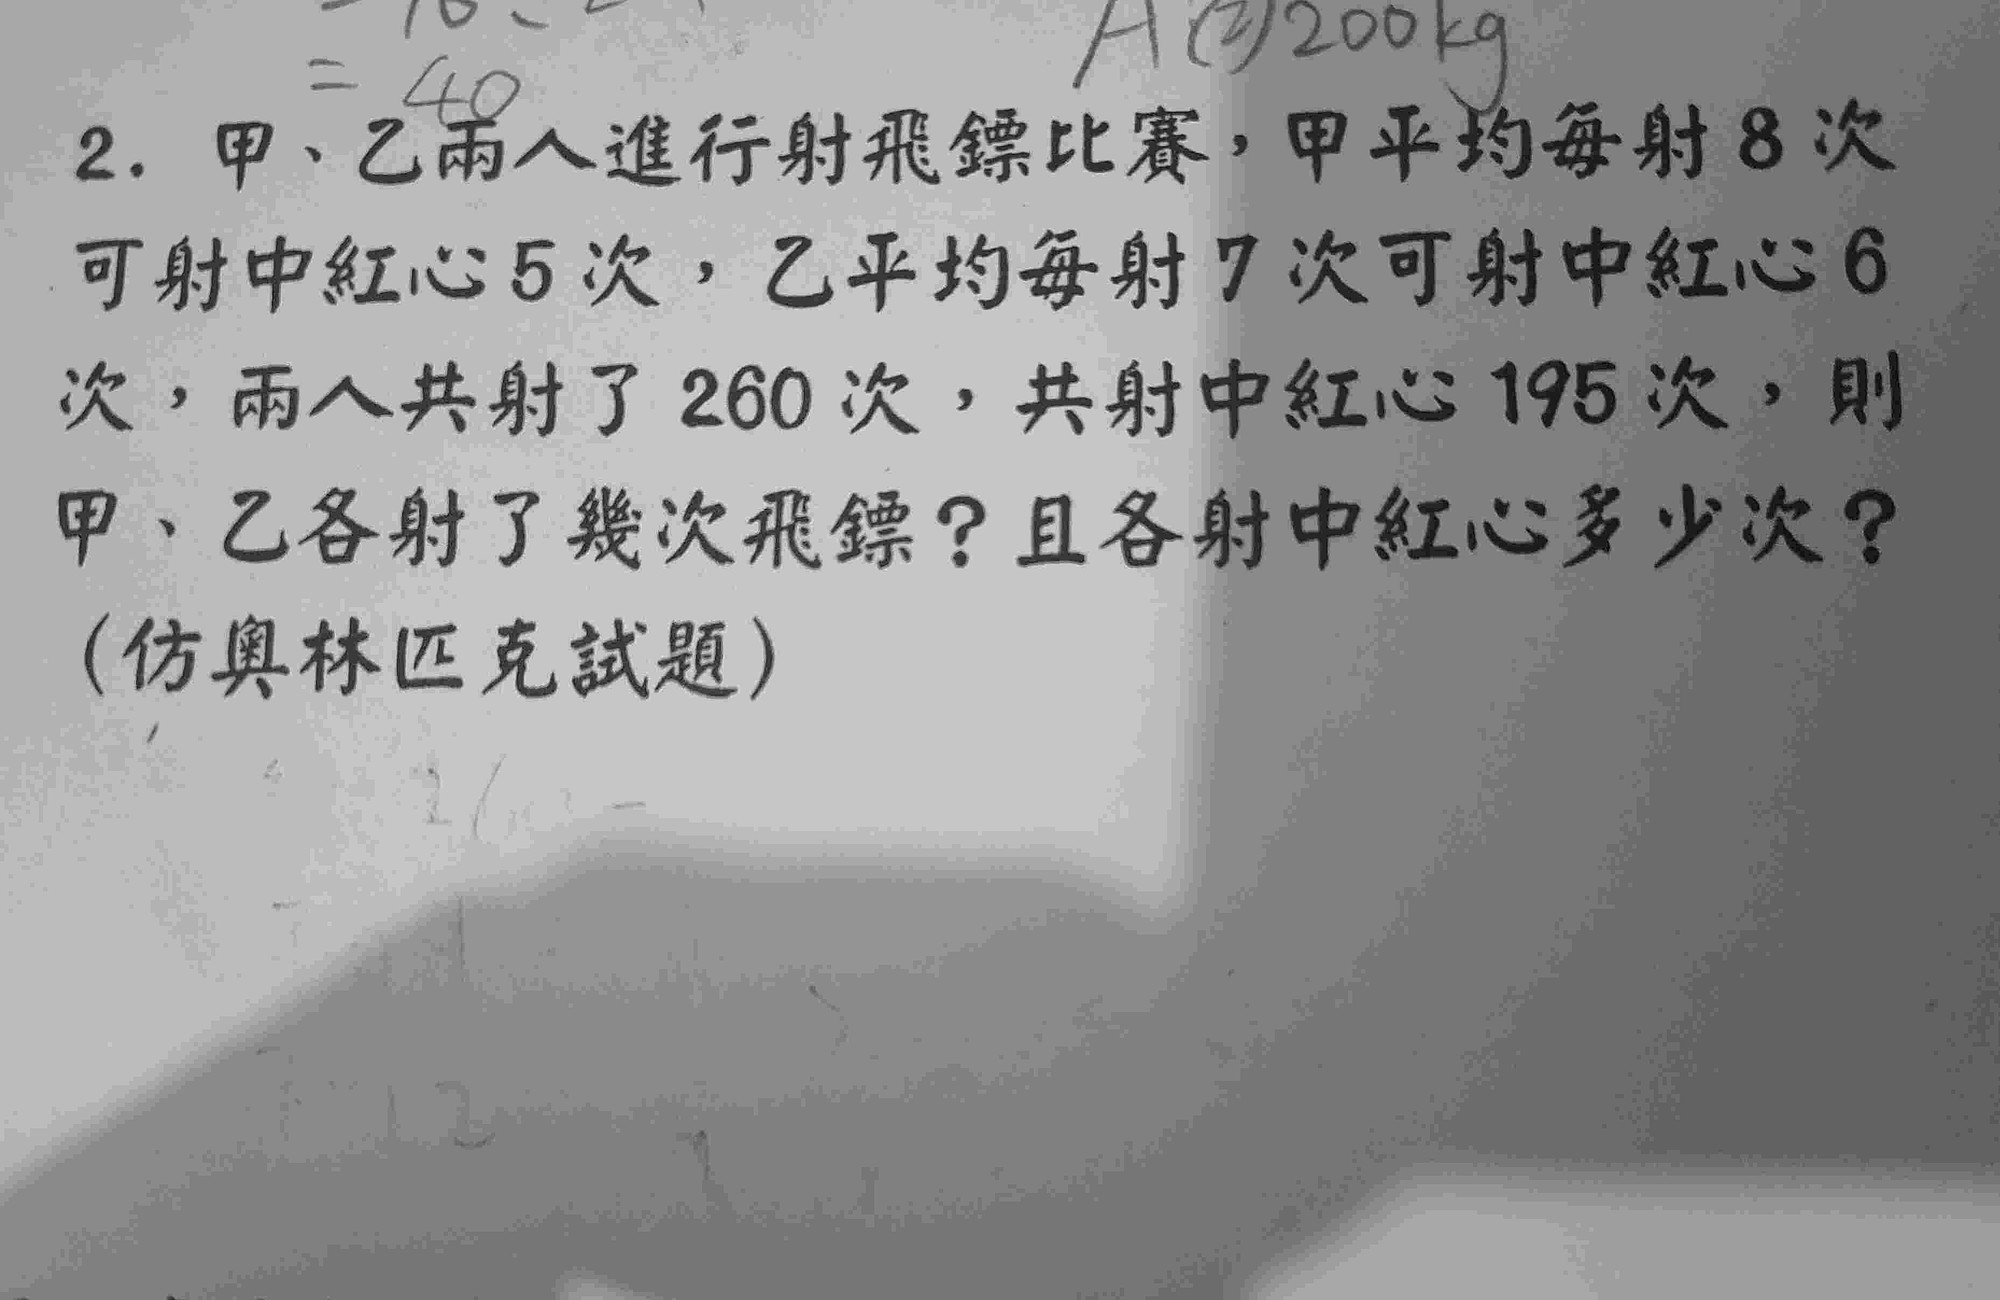 = 40
A(2)200kg
2. 甲、乙兩人進行射飛鏢比賽，甲平均每射8次
可射中紅心5次，乙平均每射7次可射中紅心6
次，兩人共射了260次，共射中紅心195次，則
甲、乙各射了幾次飛鏢？且各射中紅心多少次？
(仿奧林匹克試題)